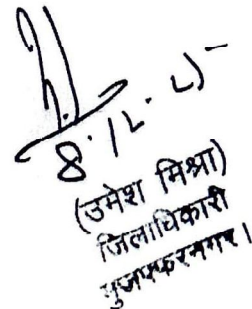 8.12.25
(उमेश मिश्रा)
जिलाधिकारी
मुजफ्फरनगर।